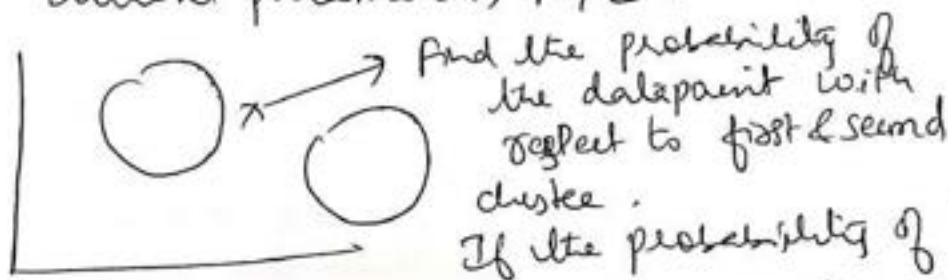 Find the probability of
the datapoint with
respect to first & second
cluster.
If the probability of